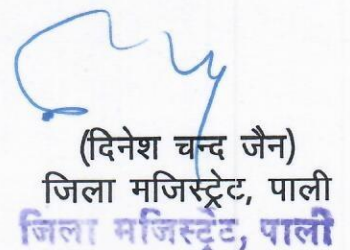 (दिनेश चन्द जैन)
जिला मजिस्ट्रेट, पाली
जिला मजिस्ट्रेट, पाली